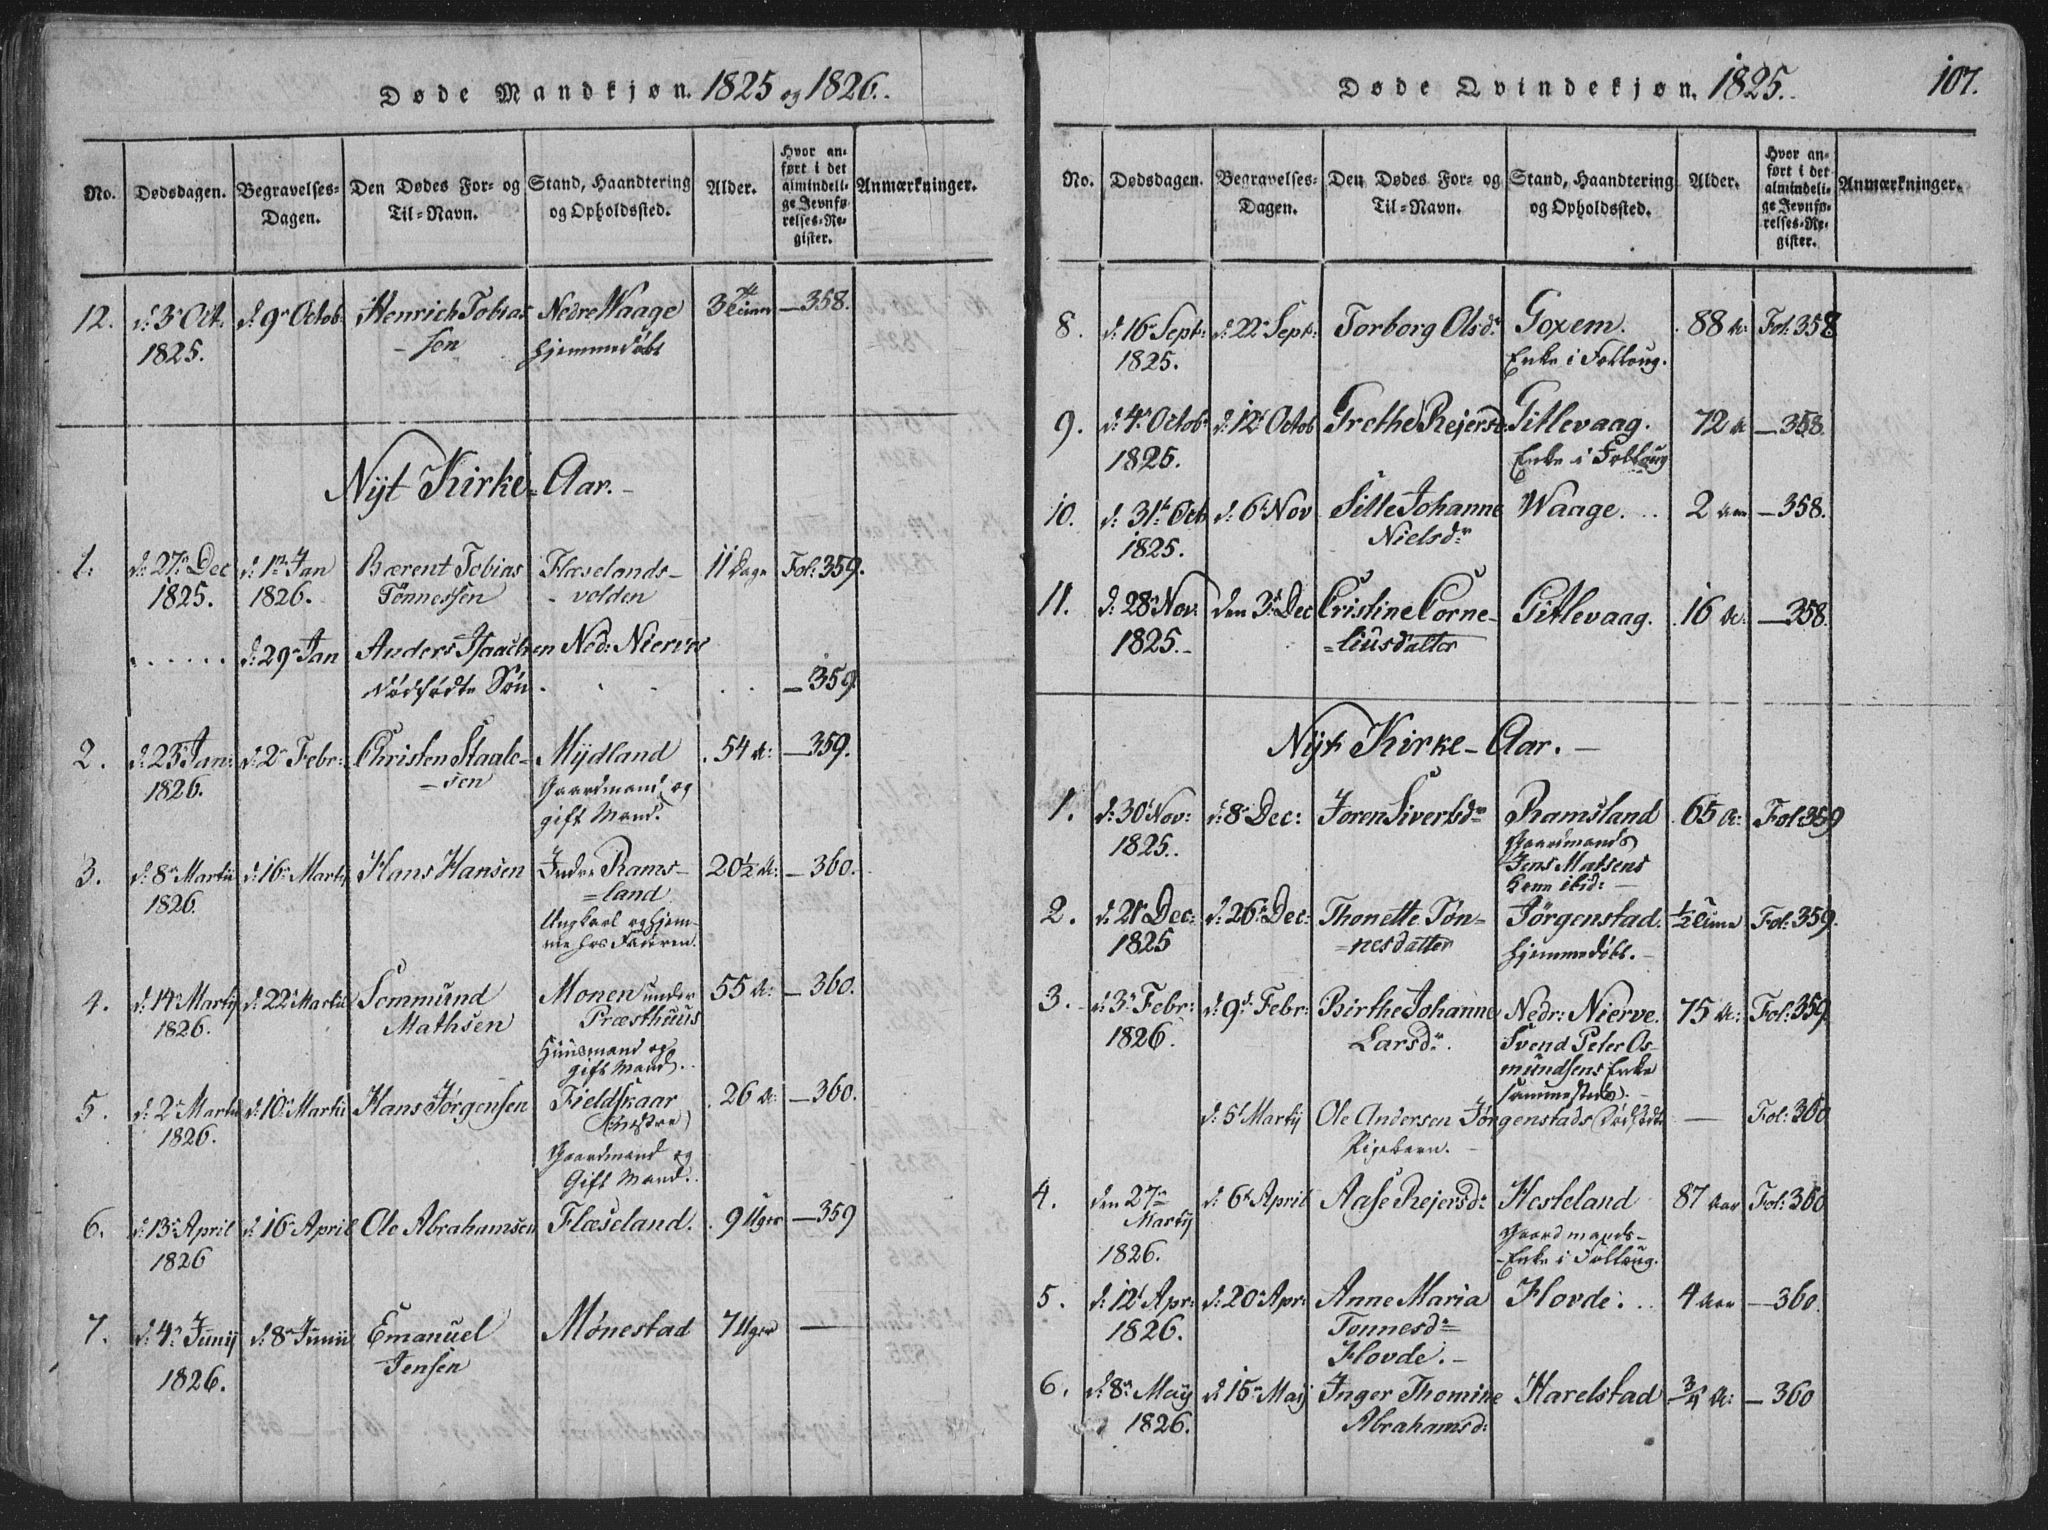 Døde Mandkjøn. 1825 og 1826.
No. Dødsdagen. Begravelses-Dagen. Den Dødes For- og Til-Navn. Stand, Haandtering og Opholdssted. Alder. Hvor anført i det almindelige Jevnførelses-Register. Anmærkninger.
12. d: 3 Oct. d. 9 Octob: Henrich Tobias Nedre Waage 3 —358.
1825. -sen hjemmedøbt
Nyt Kirke-Aar.-
1. d: 27 Dec d: 1 Jan Bærent Tobias Flæselands- 11 Dage Fol: 359.
1825. 1826. Tønnessen -volden
d: 29 Jan Anders Isaachsen Ned: Nierve
dødfødte Søn —359
2. d: 23 Jan: d: 2 Febr: Christen Staale- Mydland 54 A: —359.
1826. -sen Gaardmand og
gift Mand.
3. d: 8 Martii d: 16 Martij Hans Hansen Indre Rams- 20½ A: —360.
1826. =land
Ungkarl og hjem-
me hos Faderen.
4. d: 14 Martij d: 22 Martii Semmund Monen under 55 A: —360.
1826. Mathsen Præsthuus
Huusmand og
gift Mand.
5. d: 2 Martii d: 10 Martii Hans Jørgensen Fieldskaar 26 A: —360.
1826.
Gaardmand og
Gift Mand.
6. d: 13 April d: 16 April Ole Abrahamsen Flæseland. 9 Uger —359
1826
7. d: 4 Junij d: 8 Junii Emanuel Mønestad 7 Uger —
1826. Jensen
Døde Qvindekjøn. 1825. 107.
No. Dødsdagen. Begravelses-Dagen. Den Dødes For- og Til-Navn. Stand, Haandtering og Opholdssted. Alder. Hvor anført i det almindelige Jevnførelses-Register. Anmærkninger.
8. d: 16 Sept: d: 22 Sept: Torborg Olsdr Goxem. 88 A: Fol: 358
1825. Enke i Folloug.
9. d: 4 Octob: d: 12 Octob Grethe Rejersd: Gitlevaag. 72 A —358.
1825. Enke i Folloug
10. d: 31 Octb d: 6 Nov Sille Johanne Waage. 2 Aar —358.
1825. Nielsdr
11. d: 28 Nov: den 3 Dec Cristine Corne- Gitlevaag. 16 A: —358.
1825.- =liusdatter
Nyt Kirke-Aar.-
1. d: 30 Nov: d: 8 Dec: Joren Siversdr Ramsland 65 A: Fol: 359
1825. Gaardmands
Jens Matsens
Kone ibid:
2. d: 21 Dec: d: 26 Dec: Thonette Tøn- Jørgenstad. ½ Time Fol: 359.
1825 =nesdatter hjemmedøbt.
3. d: 3 Febr: d: 9 Febr: Birthe Johanne Nedr: Nierve. 75 A: Fol: 359
1826. Larsdr. Svend Peter Os-
mundsens Enke
sammesteds.
d. 5 Martij Ole Andersen Jørgenstads Dødfødte — Fol: 360
Pigebarn.
4. den 27 d: 6 April Aase Rejersdr Hesteland 87 Aar Fol: 360
Martij Gaardmands-
1826. -Enke i Folloug.
5. d: 12 Apr: d: 20 Apr: Anne Maria Hovde. 4 Aar —360.
1826. Tonnesdr
Hovde.-
6. d: 8 May d: 15 Maij Inger Thomine Harelstad ¾ A: —360
1826. Abrahamsd: